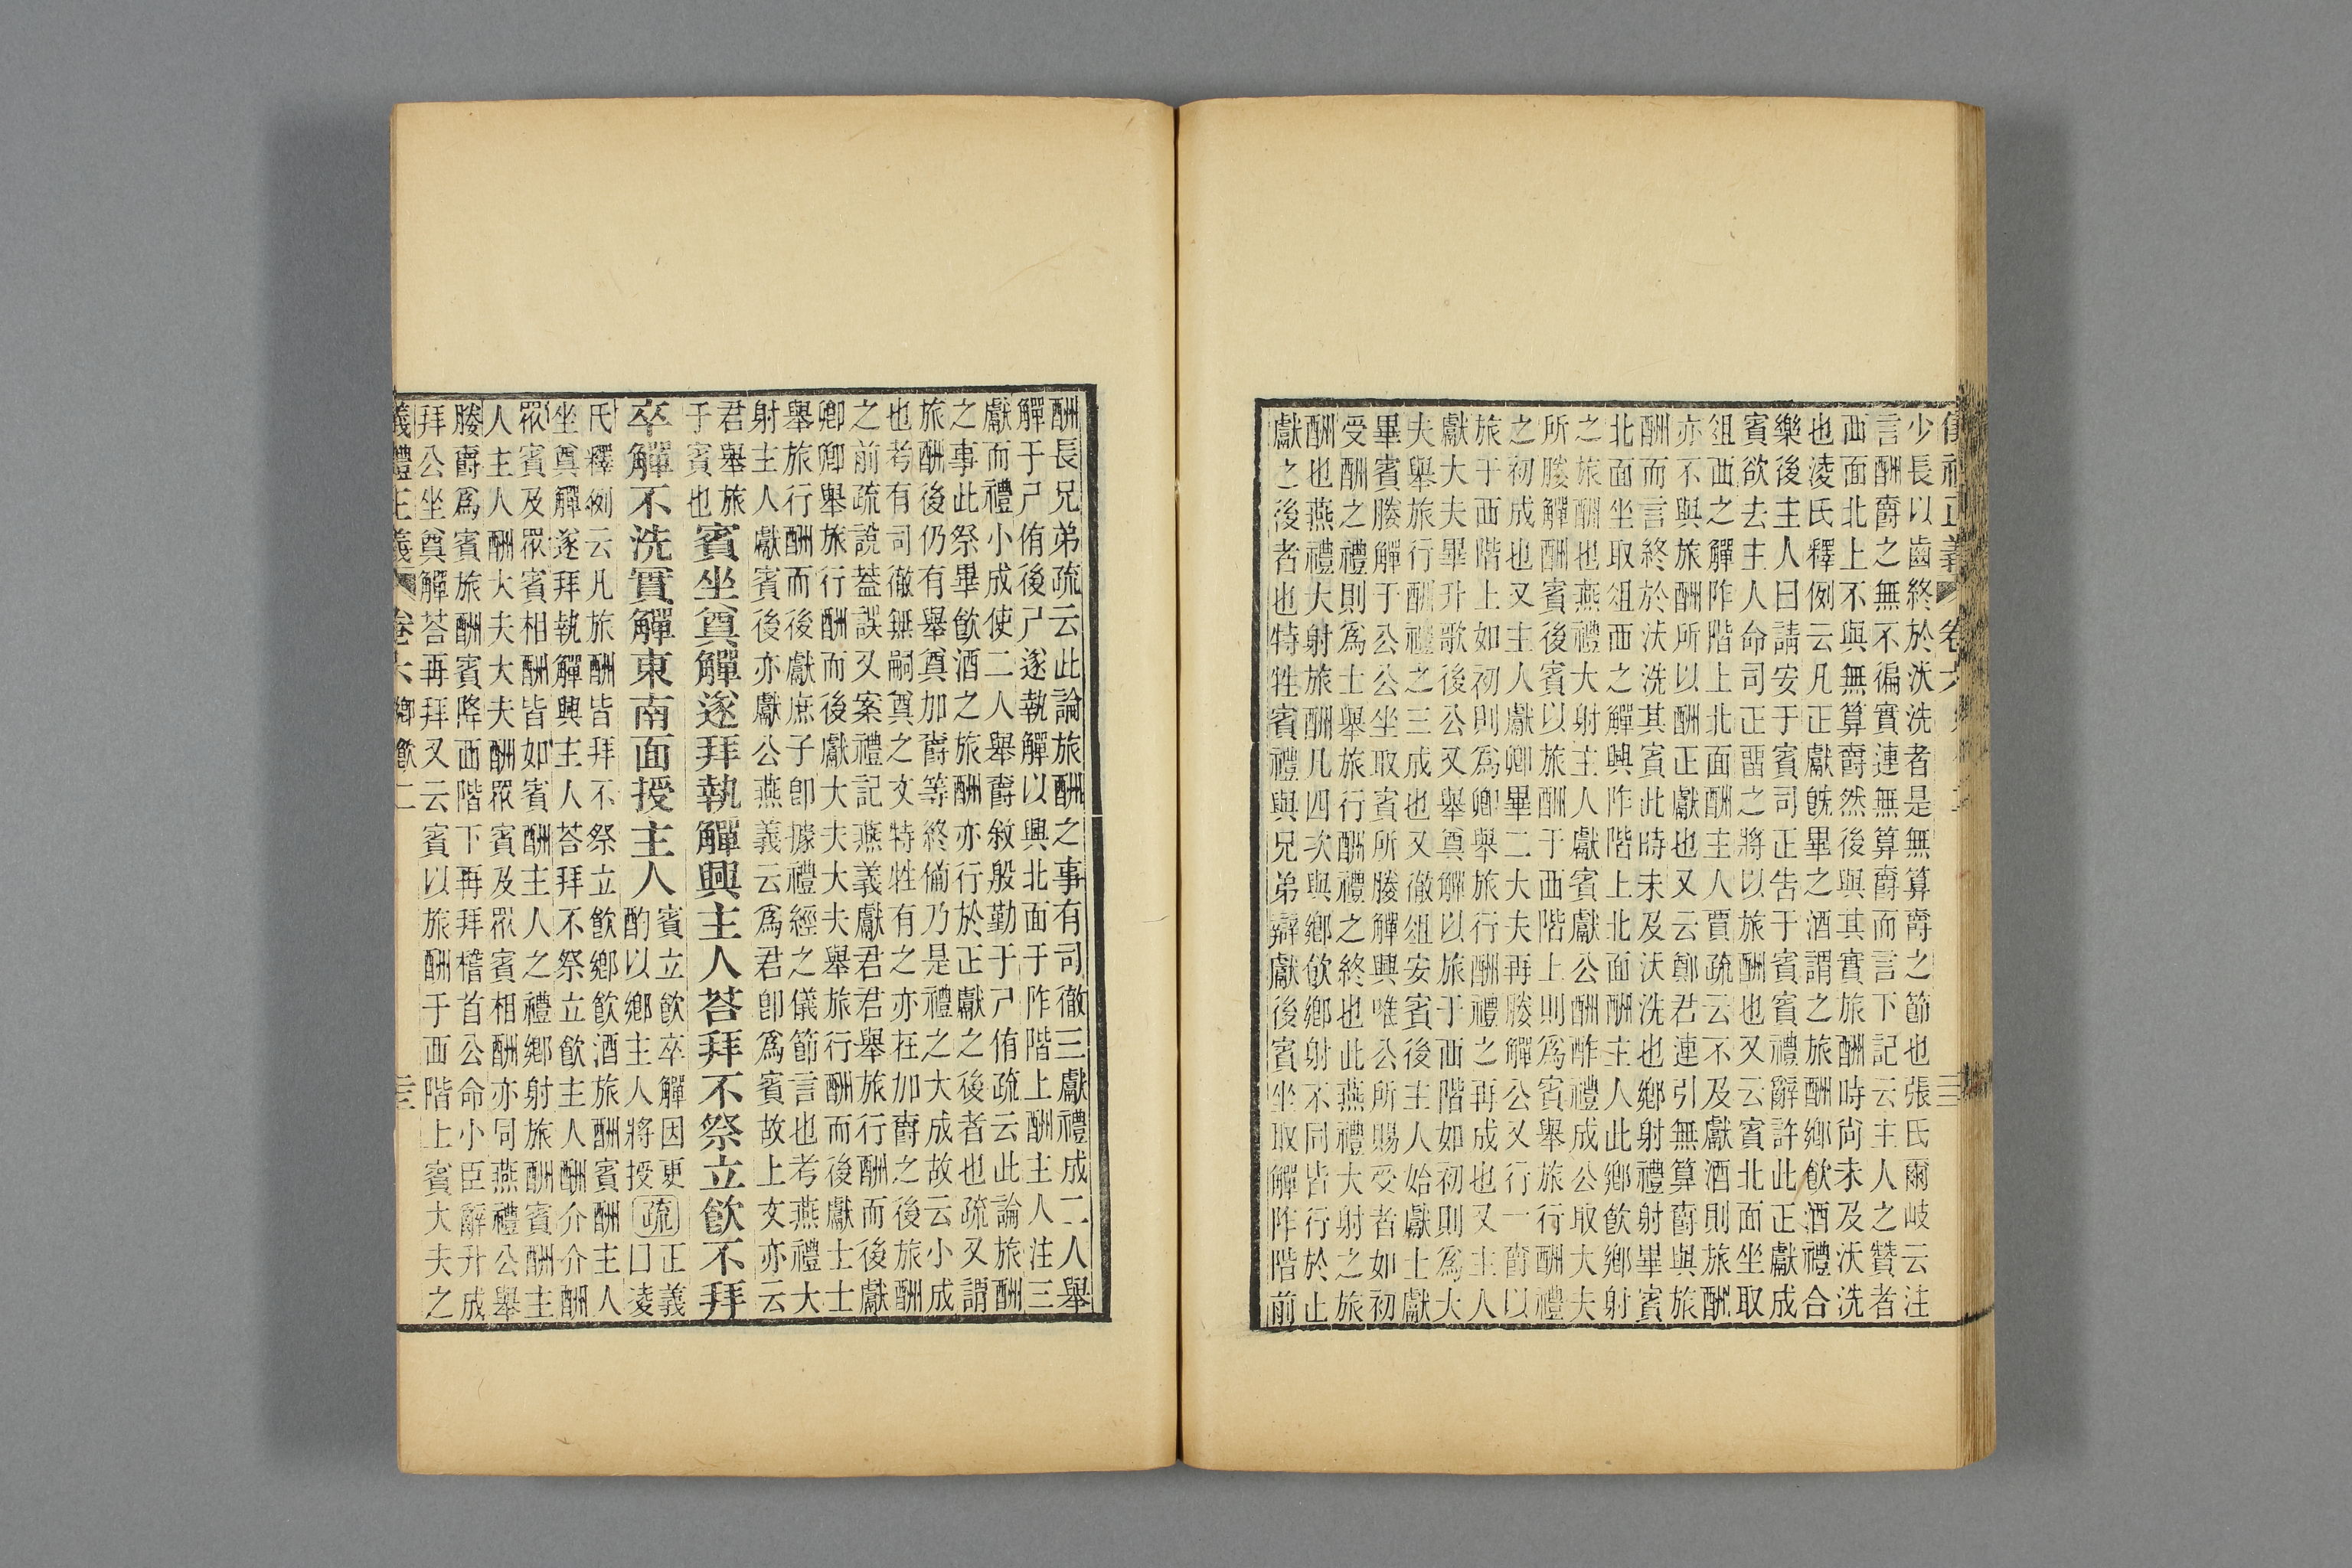 儀禮正義 卷六 三
少長以齒終於沃洗者是無算爵之節也張氏爾岐云注
言酬爵之無不徧實連無算爵而言下記云主人之贊者
西面北上不與無算爵然後與其實旅酬時尙未及沃洗
也淩氏釋例云凡正獻旣畢之酒謂之旅酬鄉飮酒禮合
樂後主人曰請安于賓司正告于賓賓禮辭許此正獻成
賓欲去主人命司正畱之將以旅酬也又云賓北面坐取
俎西之觶阼階上北面酬主人賈疏云不及獻酒則旅酬
亦不與旅酬所以酬正獻也又云鄭君連引無算爵與旅
酬而言終於沃洗其實此時未及沃洗也鄉射禮射畢賓
北面坐取俎西之觶興阼階上北面酬主人此鄉飮鄉射
之旅酬也燕禮大射主人獻賓獻公酬酢禮成公取大夫
所媵觶酬賓後賓以旅酬于西階上則爲賓舉旅行酬禮
之初成也又主人獻卿畢二大夫再媵觶公又行一爵以
旅于西階上如初則爲卿舉旅行酬禮之再成也又主人
獻大夫畢升歌後公又舉奠觶以旅于西階如初則爲大
夫舉旅行酬禮之三成也又徹俎安賓後主人始獻士獻
畢賓媵觶于公公坐取賓所媵觶興唯公所賜受者如初
受酬之禮則爲士舉旅行酬禮之終也此燕禮大射之旅
酬也燕禮大射旅酬凡四次與鄉飮鄉射不同皆行於止
獻之後者也特牲賓禮與兄弟辯獻後賓坐取觶阼階前
酬長兄弟疏云此論旅酬之事有司徹三獻禮成二人舉
觶于尸侑後尸遂執觶以興北面于阼階上酬主人注三
獻而禮小成使二人舉爵敘殷勤于尸侑疏云此論旅酬
之事此祭畢飮酒之旅酬亦行於正獻之後者也疏又謂
旅酬後仍有舉奠加爵等終備乃是禮之大成故云小成
也考有司徹無嗣奠之文特牲有之亦在加爵之後旅酬
之前疏說葢誤又案禮記燕義獻君君舉旅行酬而後獻
卿卿舉旅行酬而後獻大夫大夫舉旅行酬而後獻士士
舉旅行酬而後獻庶子卽據禮經之儀節言也考燕禮大
射主人獻賓後亦獻公燕義云爲君卽爲賓故上文亦云
君舉旅
于賓也
賓坐奠觶遂拜執觶興主人荅拜不祭立飮不拜
卒觶不洗實觶東南面授主人
賓立飮卒觶因更
酌以鄉主人將授
疏
正義
口淩
氏釋例云凡旅酬皆拜不祭立飮鄉飮酒旅酬賓酬主人
坐奠觶遂拜執觶興主人荅拜不祭立飮主人酬介介酬
眾賓及眾賓相酬皆如賓酬主人之禮鄉射旅酬賓酬主
人主人酬大夫大夫酬眾賓及眾賓相酬亦同燕禮公舉
媵爵爲賓旅酬賓降西階下再拜稽首公命小臣辭升成
拜公坐奠觶荅再拜又云賓以旅酬于西階上賓大夫之
儀禮正義 卷六 鄉飮二 三